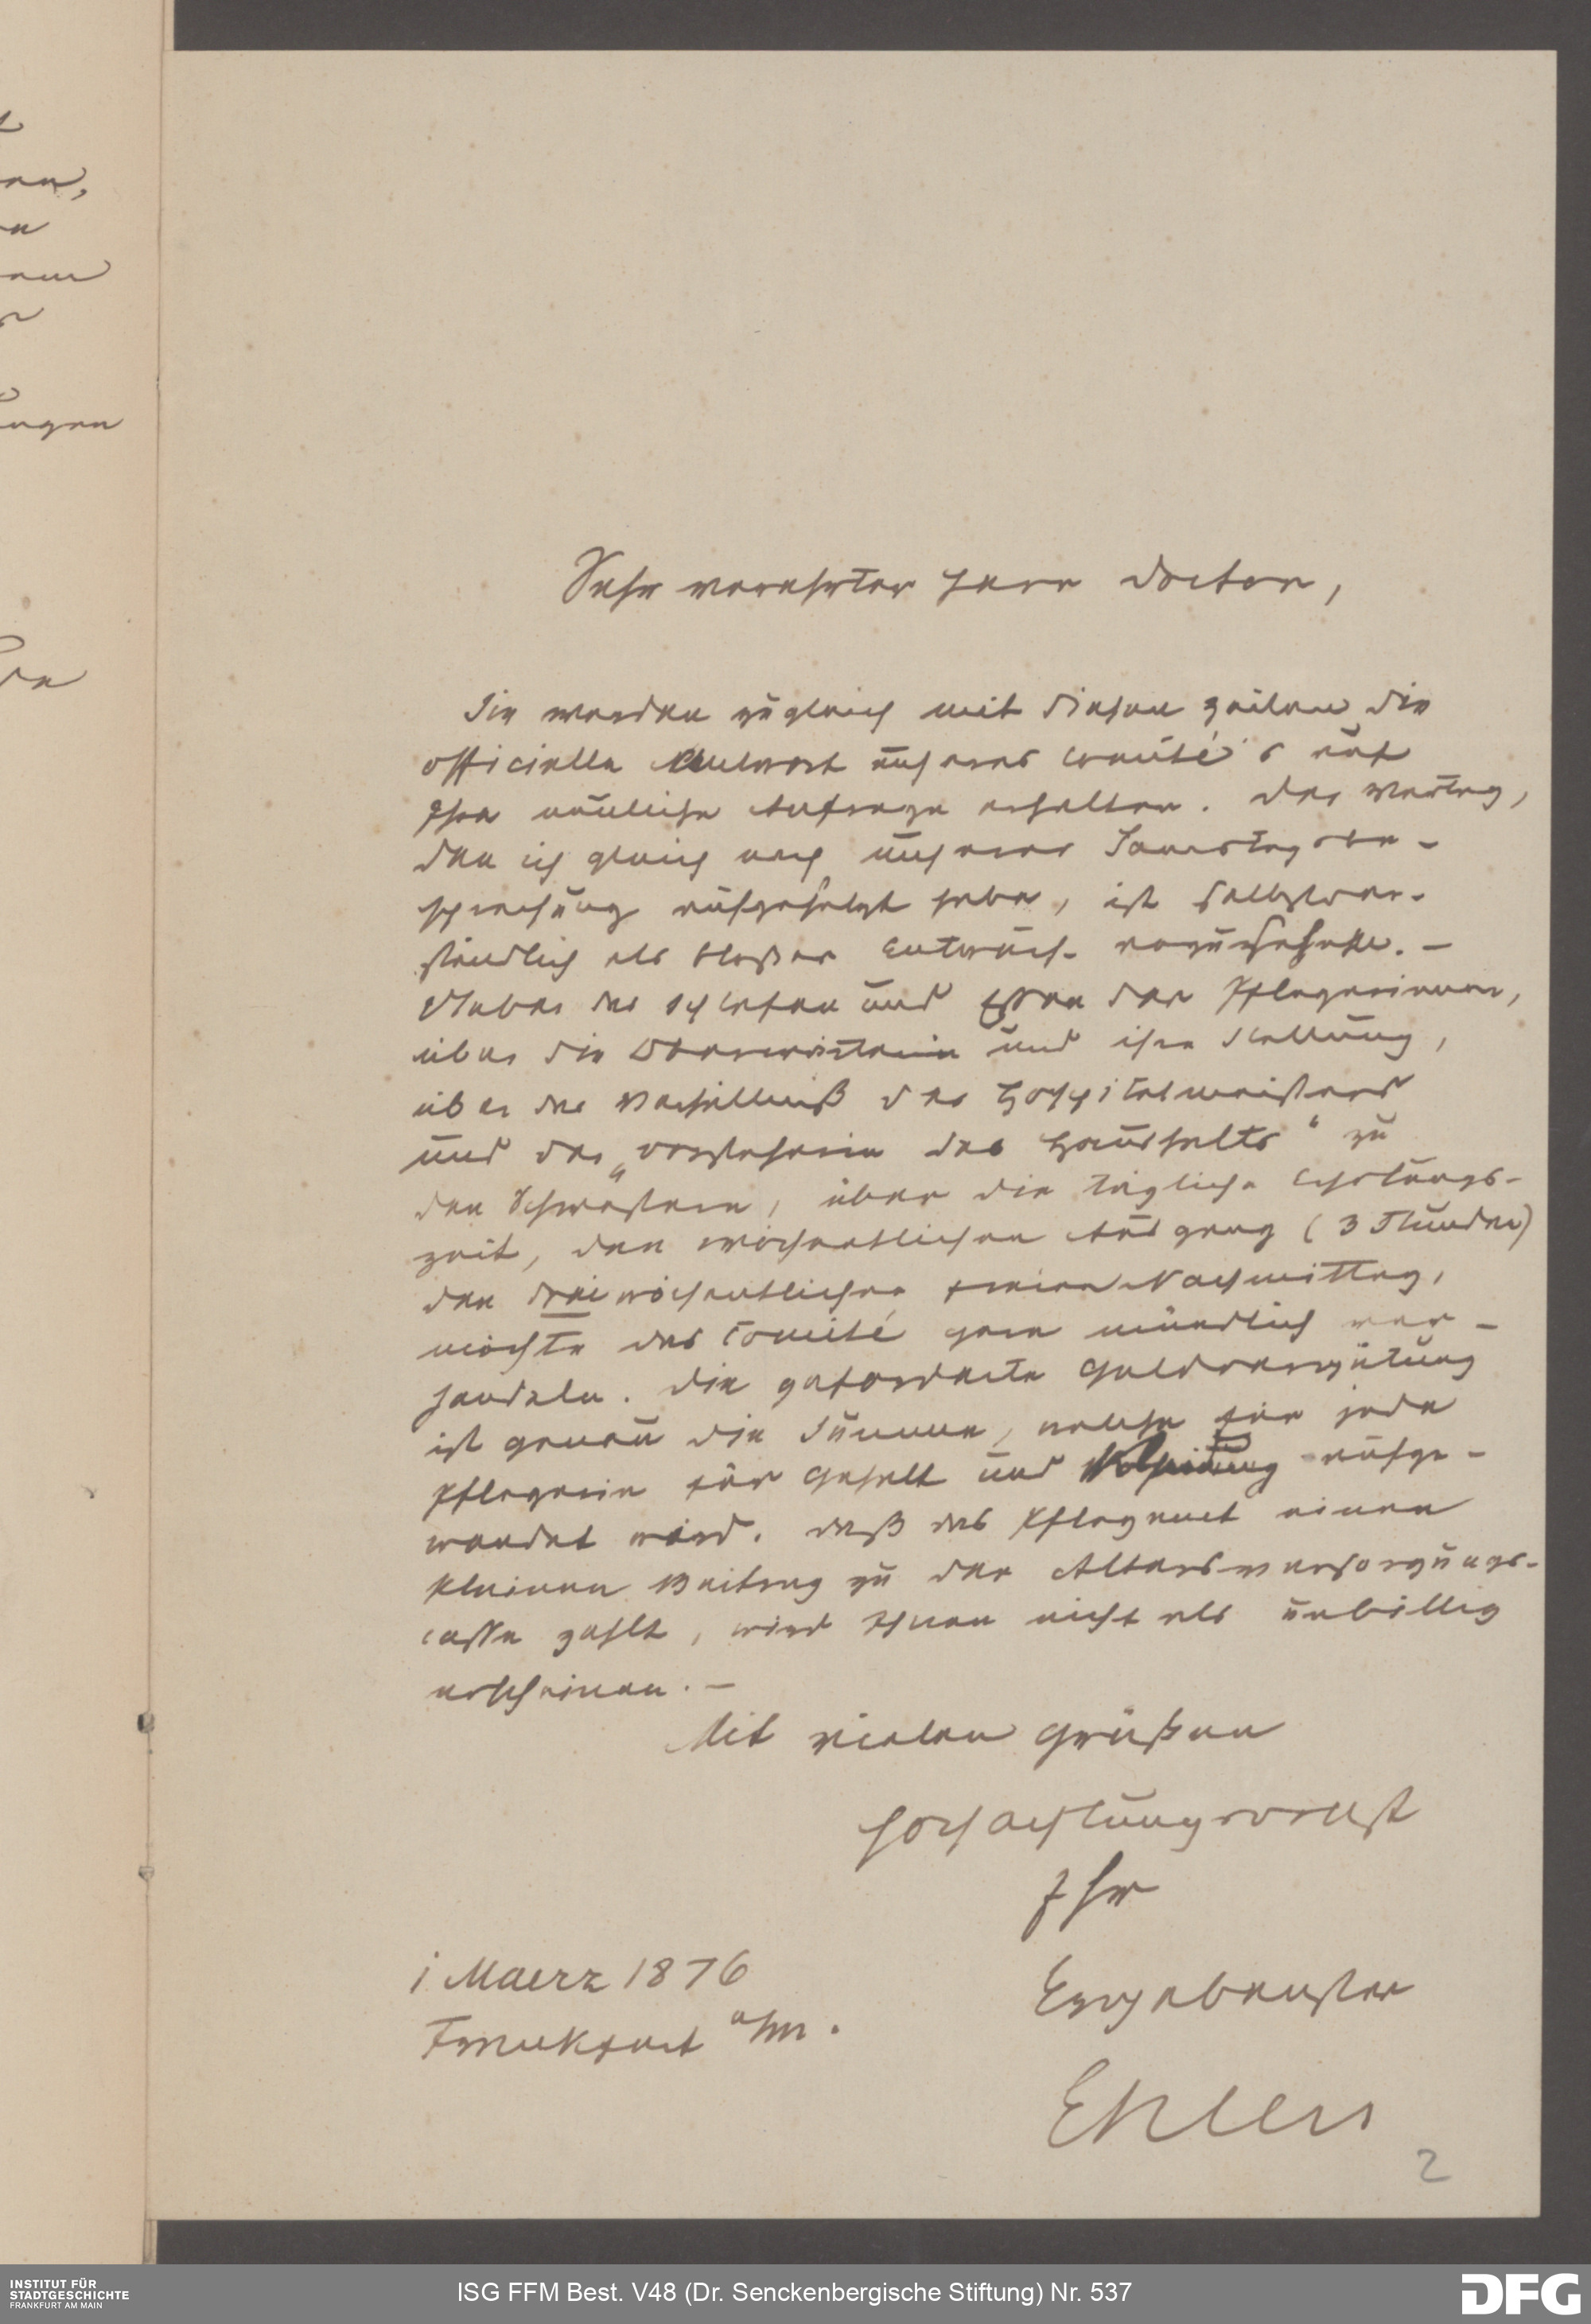 Sehr verehrter Herr Doctor,
Sie werden zugleich mit diesen Zeilen die
officielle Antwort unseres Comité's auf
Ihre neuliche Anfrage erhalten. Der Vertrag,
den ich gleich nach unserer Samstagsbe-
sprechung aufgesetzt habe, ist selbstver-
ständlich als bloßer Entwurf anzusehen. –
Ueber das Schlafen und Essen der Pflegerinnen,
über die Oberwärterin und ihre Stellung,
über das Verhältniß des Hospitalmeisters
und der „Vorsteherin des Haushalts“ zu
den Schwestern, über die tägliche Erholungs-
zeit, den wöchentlichen Ausgang (3 Stunden)
den dreiwöchentlichen freien Nachmittag,
möchte das Comité gern mündlich ver-
handeln. Die geforderte Geldvergütung
ist genau die Summe, welche für jede
Pflegerin für Gehalt und Kleidung aufge-
wendet wird. Daß das Pflegamt einen
kleinen Beitrag zu der Altersversorgungs-
casse zahlt, wird Ihnen nicht als unbillig
erscheinen. –
Mit vielen Grüßen
hochachtungsvollst
Ihr
1 Maerz 1876
Ergebenster
Frankfurt a/m.
Ehlers
2
INSTITUT FÜR
STADTGESCHICHTE
FRANKFURT AM MAIN
ISG FFM Best. V48 (Dr. Senckenbergische Stiftung) Nr. 537
DFG